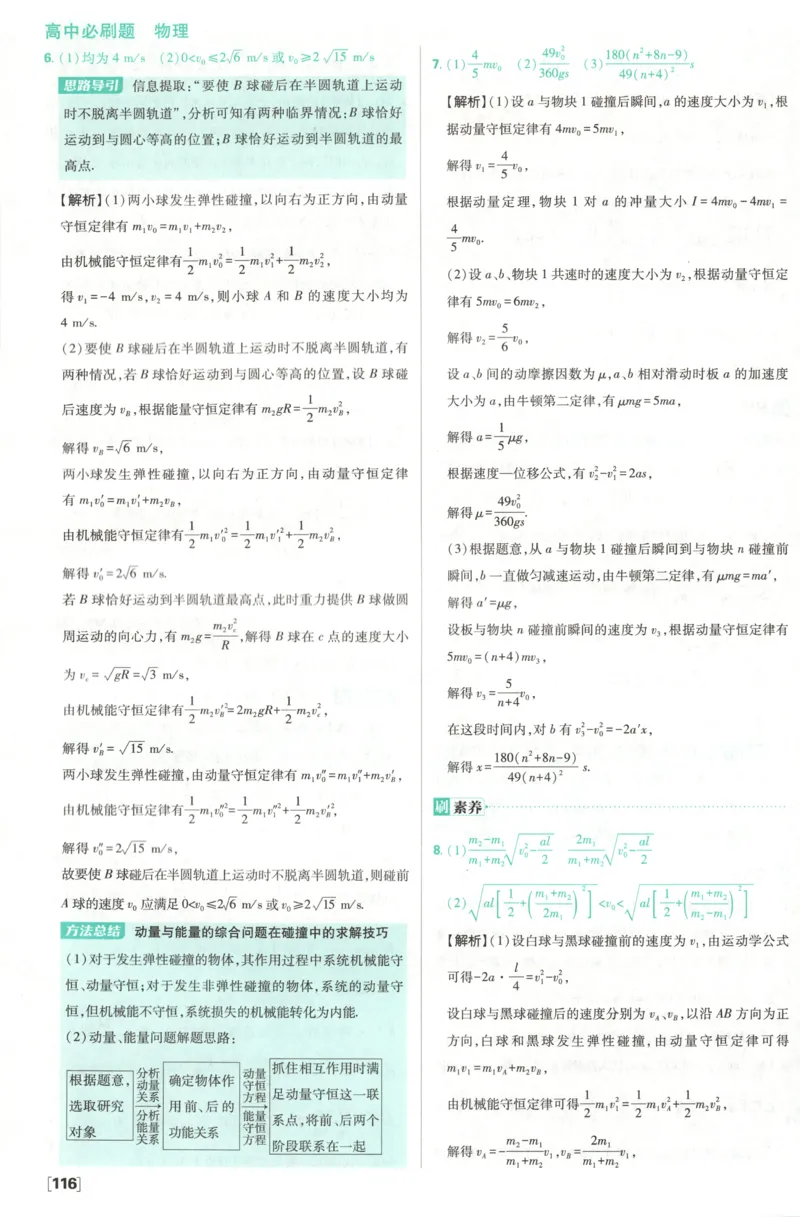 高中必刷题 物理
6. (1)均为 4 m/s (2)0<v₀≤2√6 m/s 或 v₀≥2√15 m/s
思路导引 信息提取:“要使 B 球碰后在半圆轨道上运动
时不脱离半圆轨道”,分析可知有两种临界情况:B 球恰好
运动到与圆心等高的位置;B 球恰好运动到半圆轨道的最
高点.
【解析】(1)两小球发生弹性碰撞,以向右为正方向,由动量
守恒定律有 m₁v₀=m₁v₁+m₂v₂,
由机械能守恒定律有 1/2 m₁v₀²=1/2 m₁v₁²+1/2 m₂v₂²,
得 v₁=-4 m/s,v₂=4 m/s,则小球 A 和 B 的速度大小均为
4 m/s.
(2)要使 B 球碰后在半圆轨道上运动时不脱离半圆轨道,有
两种情况,若 B 球恰好运动到与圆心等高的位置,设 B 球碰
后速度为 v_B,根据能量守恒定律有 m₂gR=1/2 m₂v_B²,
解得 v_B=√6 m/s,
两小球发生弹性碰撞,以向右为正方向,由动量守恒定律
有 m₁v₀′=m₁v₁′+m₂v_B,
由机械能守恒定律有 1/2 m₁v₀′²=1/2 m₁v₁′²+1/2 m₂v_B²,
解得 v₀′=2√6 m/s.
若 B 球恰好运动到半圆轨道最高点,此时重力提供 B 球做圆
周运动的向心力,有 m₂g=m₂v_c²/R,解得 B 球在 c 点的速度大小
为 v_c=√(gR)=√3 m/s,
由机械能守恒定律有 1/2 m₂v_B′²=2m₂gR+1/2 m₂v_c²,
解得 v_B′=√15 m/s.
两小球发生弹性碰撞,由动量守恒定律有 m₁v₀″=m₁v₁″+m₂v_B′,
由机械能守恒定律有 1/2 m₁v₀″²=1/2 m₁v₁″²+1/2 m₂v_B′²,
解得 v₀″=2√15 m/s,
故要使 B 球碰后在半圆轨道上运动时不脱离半圆轨道,则碰前
A 球的速度 v₀ 应满足 0<v₀≤2√6 m/s 或 v₀≥2√15 m/s.
方法总结 动量与能量的综合问题在碰撞中的求解技巧
(1)对于发生弹性碰撞的物体,其作用过程中系统机械能守
恒、动量守恒;对于发生非弹性碰撞的物体,系统的动量守
恒,但机械能不守恒,系统损失的机械能转化为内能.
(2)动量、能量问题解题思路:
根据题意,
选取研究
对象
分析
动量
关系
分析
能量
关系
确定物体作
用前、后的
功能关系
动量
守恒
方程
能量
守恒
方程
抓住相互作用时满
足动量守恒这一联
系点,将前、后两个
阶段联系在一起
[116]
7. (1) 4/5 mv₀ (2) 49v₀²/360gs (3) 180(n²+8n-9)/49(n+4)² s
【解析】(1)设 a 与物块 1 碰撞后瞬间,a 的速度大小为 v₁,根
据动量守恒定律有 4mv₀=5mv₁,
解得 v₁=4/5 v₀,
根据动量定理,物块 1 对 a 的冲量大小 I=4mv₀-4mv₁=
4/5 mv₀.
(2)设 a、b、物块 1 共速时的速度大小为 v₂,根据动量守恒定
律有 5mv₀=6mv₂,
解得 v₂=5/6 v₀,
设 a、b 间的动摩擦因数为 μ,a、b 相对滑动时板 a 的加速度
大小为 a,由牛顿第二定律,有 μmg=5ma,
解得 a=1/5 μg,
根据速度—位移公式,有 v₂²-v₁²=2as,
解得 μ=49v₀²/360gs.
(3)根据题意,从 a 与物块 1 碰撞后瞬间到与物块 n 碰撞前
瞬间,b 一直做匀减速运动,由牛顿第二定律,有 μmg=ma′,
解得 a′=μg,
设板与物块 n 碰撞前瞬间的速度为 v₃,根据动量守恒定律有
5mv₀=(n+4)mv₃,
解得 v₃=5/(n+4) v₀,
在这段时间内,对 b 有 v₃²-v₀²=-2a′x,
解得 x=180(n²+8n-9)/49(n+4)² s.
刷 素养
8. (1) (m₂-m₁)/(m₁+m₂) √(v₀²-al/2) 2m₁/(m₁+m₂) √(v₀²-al/2)
(2) √(al[1/2+((m₁+m₂)/2m₁)²])<v₀<√(al[1/2+((m₁+m₂)/(m₂-m₁))²])
【解析】(1)设白球与黑球碰撞前的速度为 v₁,由运动学公式
可得-2a·l/4=v₁²-v₀²,
设白球与黑球碰撞后的速度分别为 v_A、v_B,以沿 AB 方向为正
方向,白球和黑球发生弹性碰撞,由动量守恒定律可得
m₁v₁=m₁v_A+m₂v_B,
由机械能守恒定律可得 1/2 m₁v₁²=1/2 m₁v_A²+1/2 m₂v_B²,
解得 v_A=-(m₂-m₁)/(m₁+m₂) v₁,v_B=2m₁/(m₁+m₂) v₁,